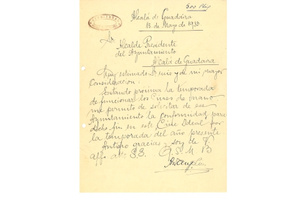 Alcalá de Guadaira
de Mayo de 1938
Sr.
Alcalde Presidente
del Ayuntamiento
Alcalá de Guadaira
Muy estimado Sr. mio y de mi mayor
consideracion:
Estando proxima la temporada
de funcionar los Cines de verano
me permito de solicitar de ese
Ayuntamiento la conformidad para
este Cine Ideal por
la temporada del año presente
Anticipo gracias y soy de V.
Affmo. S.S. Q.E.S.M.